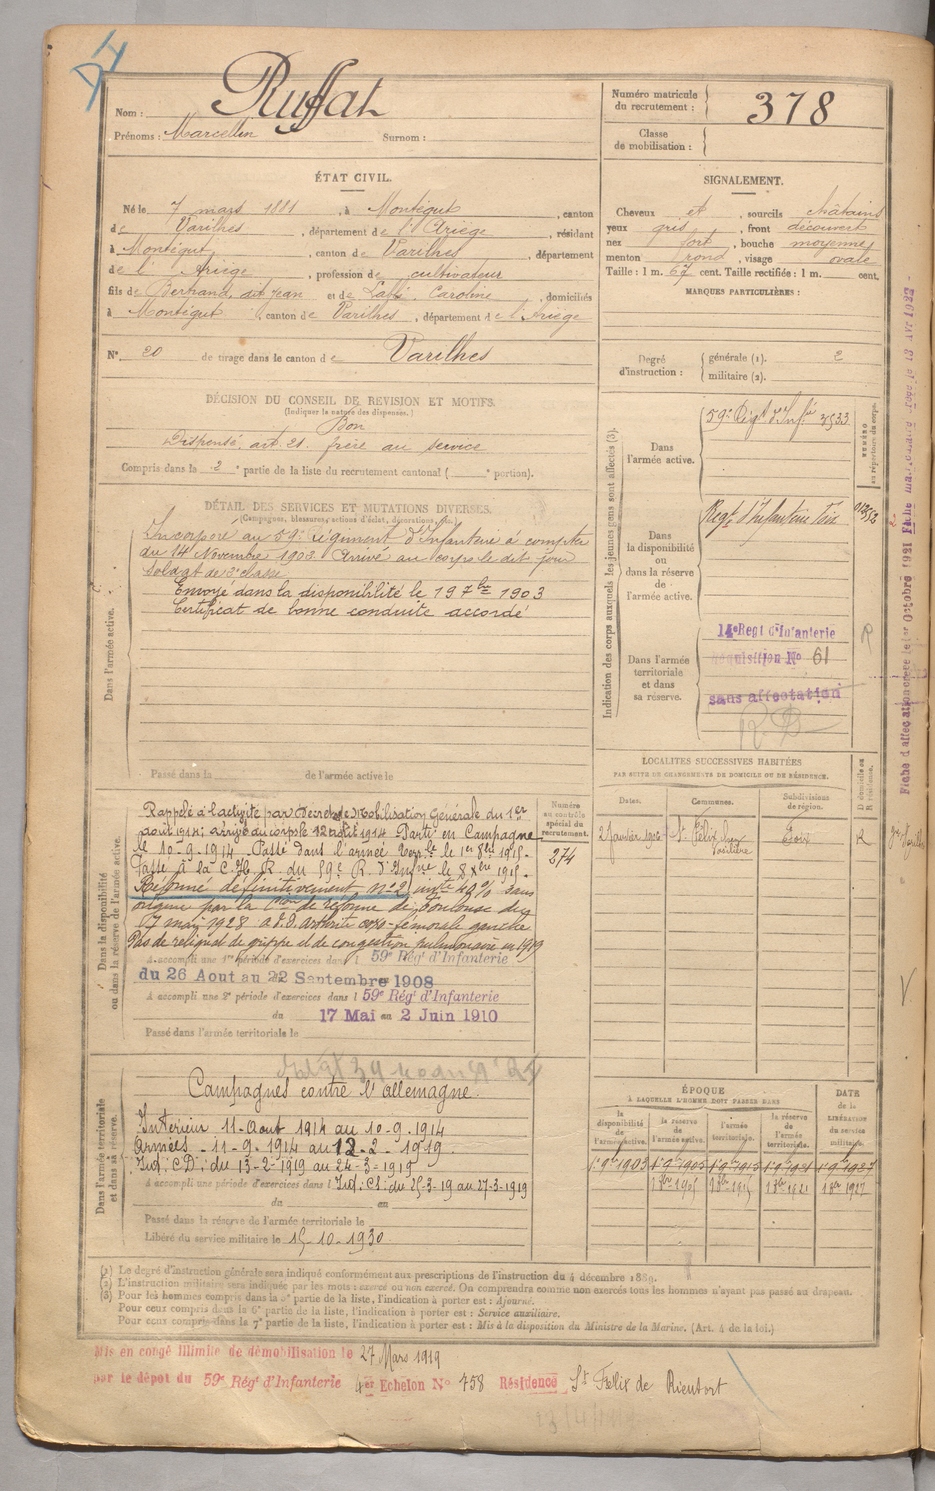 Nom : Ruffat
Prénoms : Marcellin Surnom :
Numéro matricule du recrutement : 378
Classe de mobilisation :
ÉTAT CIVIL.
Né le 7 mars 1881, à Montégut, canton
de Varilhes, département de l'Ariège, résidant
à Montégut, canton de Varilhes, département
de l'Ariège, profession de cultivateur
fils de Bertrand, dit Jean et de Caroline, domiciliés
à Montégut, canton de Varilhes, département de l'Ariège
N° 20 de tirage dans le canton de Varilhes
SIGNALEMENT.
Cheveux et, sourcils châtains
yeux gris, front découvert
nez fort, bouche moyenne
menton rond, visage ovale
Taille : 1 m. 67 cent. Taille rectifiée : 1 m. cent.
MARQUES PARTICULIÈRES :
Degré d'instruction : générale (1). 2
militaire (2).
DÉCISION DU CONSEIL DE REVISION ET MOTIFS.
(Indiquer la nature des dispenses.)
Bon
Dispensé art. 21. frère au service
Compris dans la 2e partie de la liste du recrutement cantonal ( e portion).
DÉTAIL DES SERVICES ET MUTATIONS DIVERSES.
(Campagnes, blessures, actions d'éclat, décorations, etc.)
Dans l'armée active.
Incorporé au 59e Régiment d'Infanterie à compter
du 14 Novembre 1902. Arrivé au corps le dit jour
soldat de 2e classe
Envoyé dans la disponibilité le 19 7bre 1903
Certificat de bonne conduite accordé
Passé dans la de l'armée active le
Indication des corps auxquels les jeunes gens sont affectés (3).
Dans l'armée active.
59e Régt d'Infie 3533
NUMÉRO au répertoire du corps.
Dans la disponibilité ou dans la réserve de l'armée active.
Regt d'Infanterie Foix
Dans l'armée territoriale et dans sa réserve.
14e Regt d'Infanterie
No 61
sans affectation
LOCALITÉS SUCCESSIVES HABITÉES
PAR SUITE DE CHANGEMENTS DE DOMICILE OU DE RÉSIDENCE.
Dates. Communes. Subdivisions de région. D domicile ou R résidence.
2 Janvier St Félix Foix R
Dans la disponibilité ou dans la réserve de l'armée active.
Numéro au contrôle spécial du recrutement.
274
Rappelé à l'activité par Décret de Mobilisation Générale du 1er
août 1914; arrivé au corps le 12 août 1914 Parti en Campagne
le 10-9-1914. Passé dans l'armée terrle le 1er 8bre 1915.
Passé à la C.H.R. du 59e R. d'Infrie le 8 Xbre 1915.
Réformé définitivement no 2, invté 40% sans
origine par la Con de réforme de Toulouse du
17 mai 1928 arthrite coxo-fémorale gauche
Pas de reliquat de grippe et de congestion pulmonaire en 1919
A accompli une 1re période d'exercices dans l 59e Régt d'Infanterie
du 26 Aout au 22 Septembre 1908
A accompli une 2e période d'exercices dans l 59e Régt d'Infanterie
du 17 Mai au 2 Juin 1910
Passé dans l'armée territoriale le
Dans l'armée territoriale et dans sa réserve.
Campagnes contre l'allemagne.
Intérieur 11-Aout 1914 au 10-9-1914
Armées - 11-9-1914 au 12-2-1919
Int. CD: du 13-2-1919 au 24-3-1919
A accompli une période d'exercices dans l Int: CI: du 25-3-19 au 27-3-1919
du au
Passé dans la réserve de l'armée territoriale le
Libéré du service militaire le 15-10-1930
ÉPOQUE
À LAQUELLE L'HOMME DOIT PASSER DANS
la disponibilité de l'armée active. la réserve de l'armée active. l'armée territoriale. la réserve de l'armée territoriale.
DATE de la LIBÉRATION du service militaire.
1er 8bre 1905 1er 8bre 1915 1er 8bre 1921 1er 8bre 1927
(1) Le degré d'instruction générale sera indiqué conformément aux prescriptions de l'instruction du 4 décembre 1889.
(2) L'instruction militaire sera indiquée par les mots : exercé ou non exercé. On comprendra comme non exercés tous les hommes n'ayant pas passé au drapeau.
(3) Pour les hommes compris dans la 5e partie de la liste, l'indication à porter est : Ajourné.
Pour ceux compris dans la 6e partie de la liste, l'indication à porter est : Service auxiliaire.
Pour ceux compris dans la 7e partie de la liste, l'indication à porter est : Mis à la disposition du Ministre de la Marine. (Art. 4 de la loi.)
Mis en congé illimité de démobilisation le 27 Mars 1919
par le dépot du 59e Régt d'Infanterie 4er Echelon No 758 Résidence St Félix de Rieutort